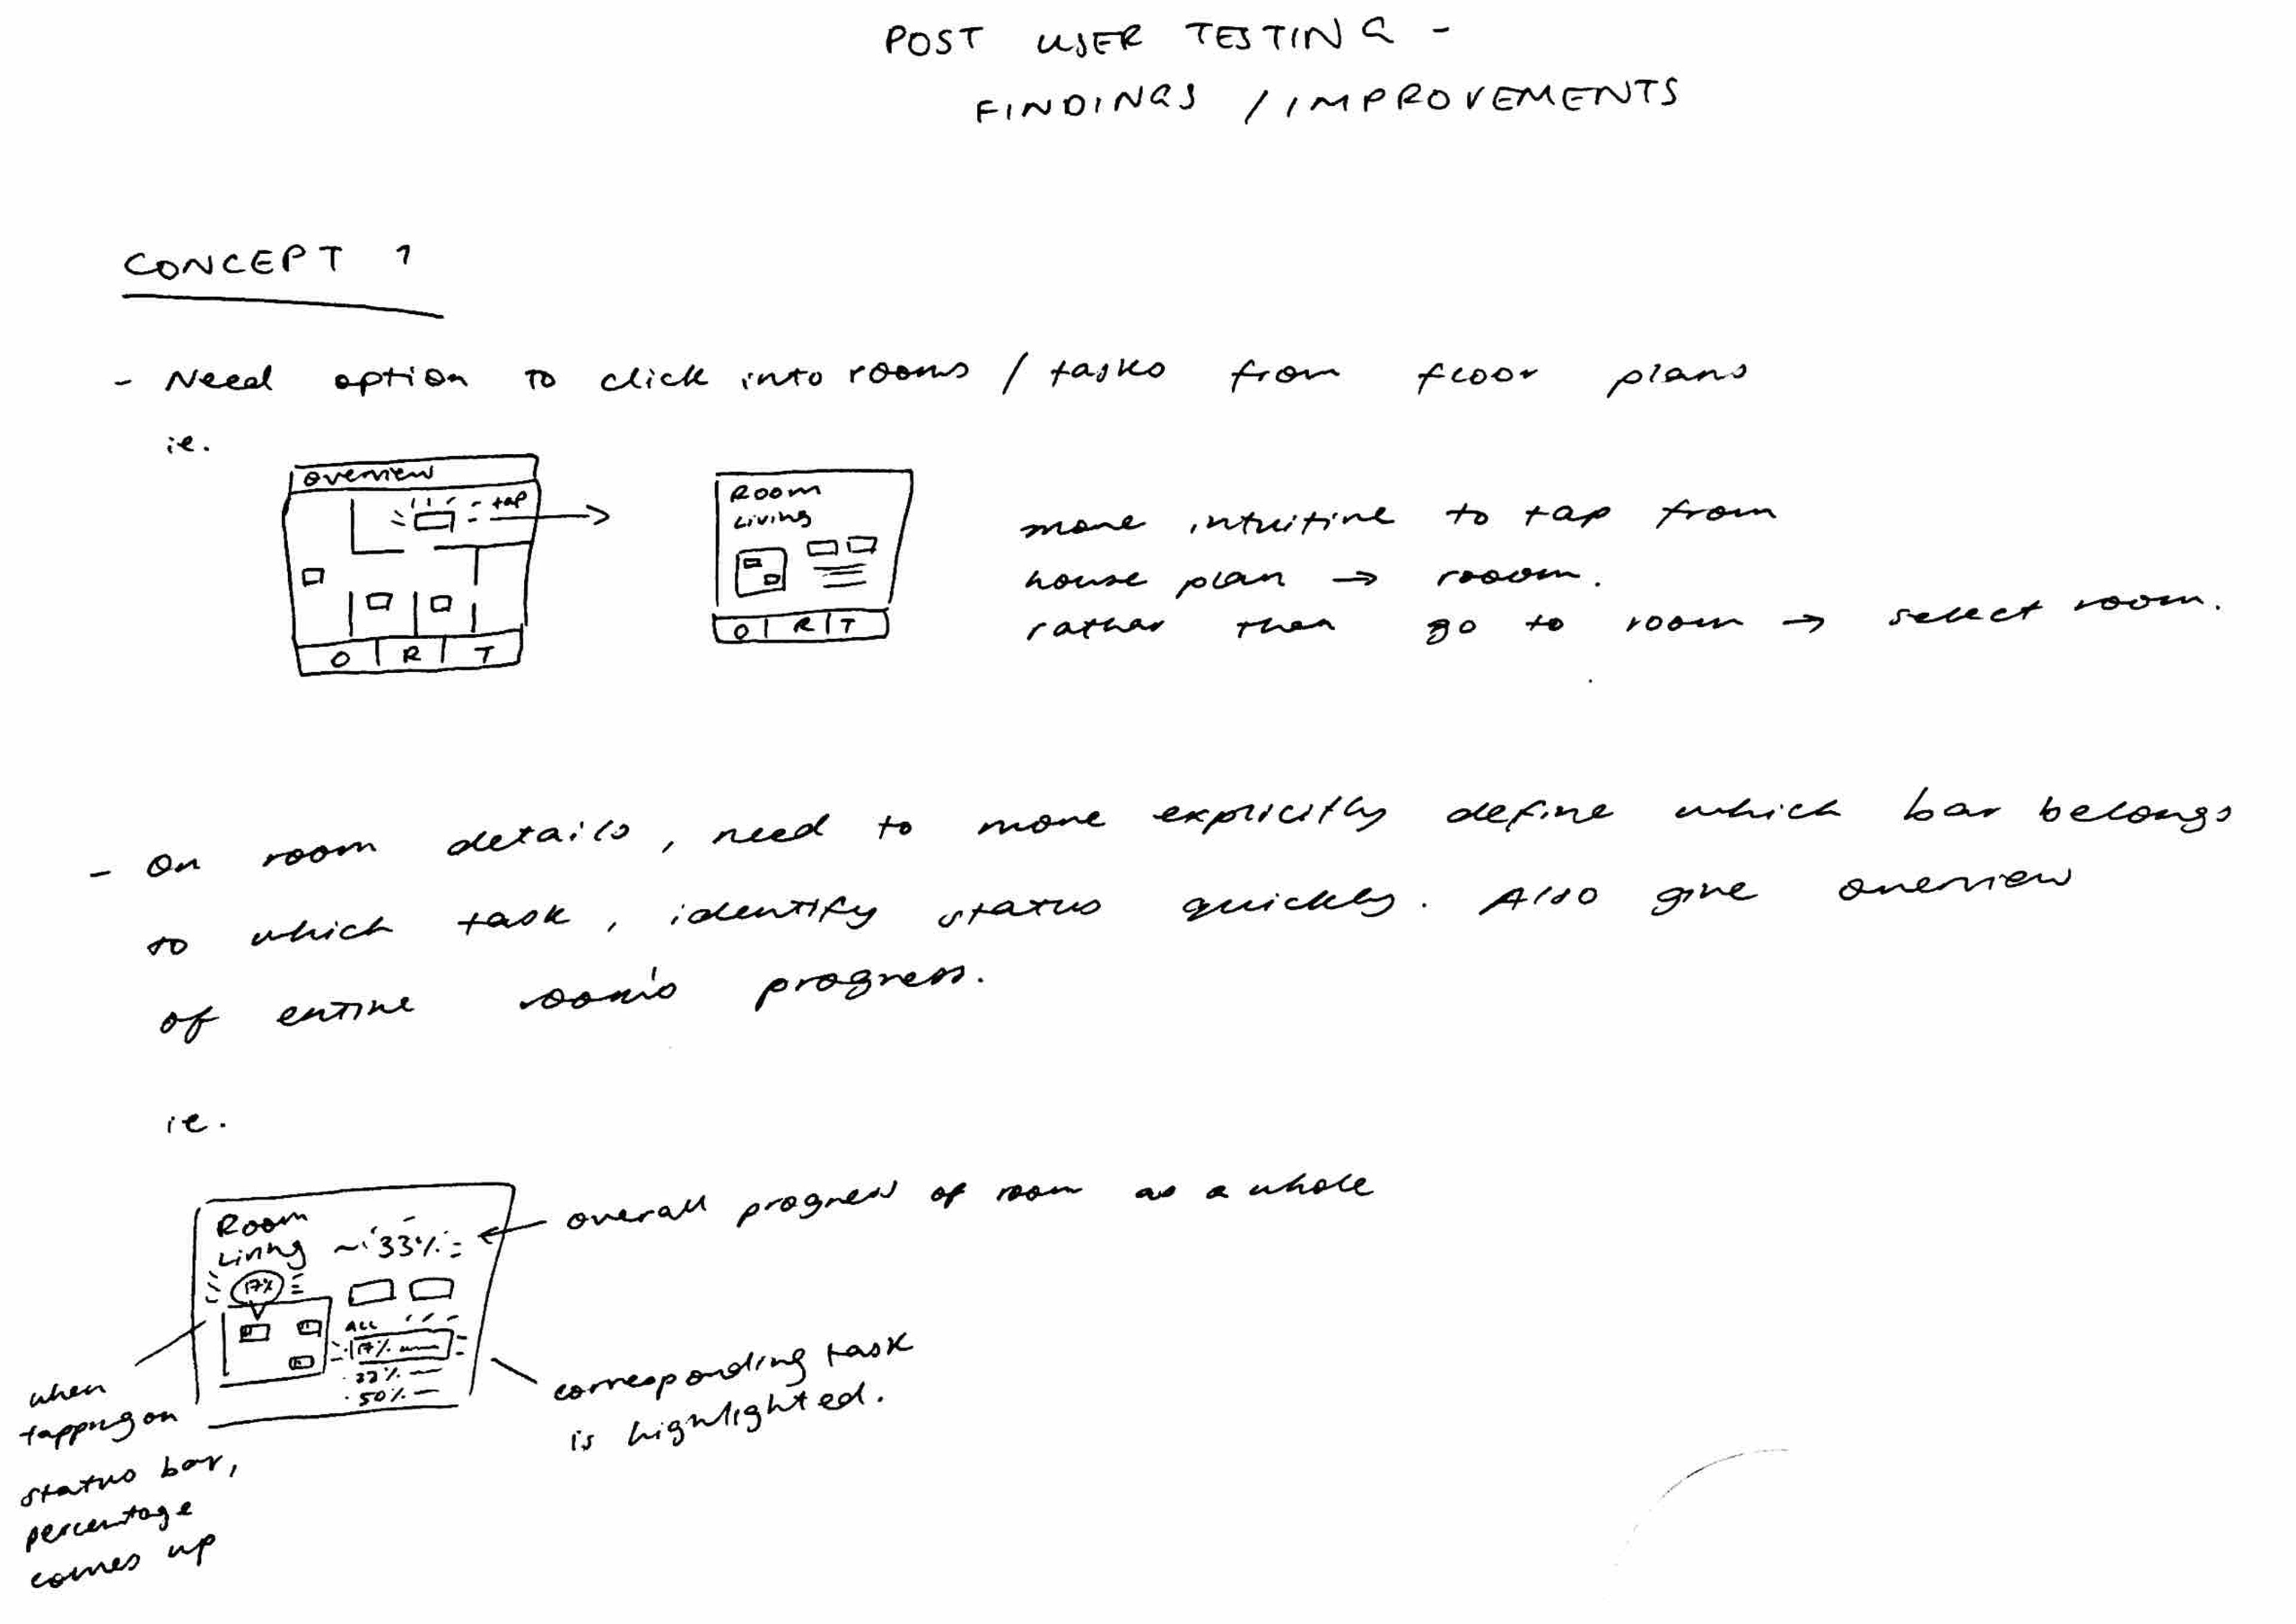 POST USER TESTING -
FINDINGS / IMPROVEMENTS
CONCEPT 1
- Need option to click into rooms / tasks from floor plans
ie.
overview
tap
O R T
Room
Living
O R T
more intuitive to tap from
house plan → rooom.
rather than go to room → select room.
- On room details, need to more explicitly define which bar belongs
to which task, identify status quickly. Also give overview
of entire room's progress.
ie.
Room
Living
33%
17%
ALL
17%
33%
50%
overall progress of room as a whole
corresponding task
is highlighted.
when
tapping on
status bar,
percentage
comes up